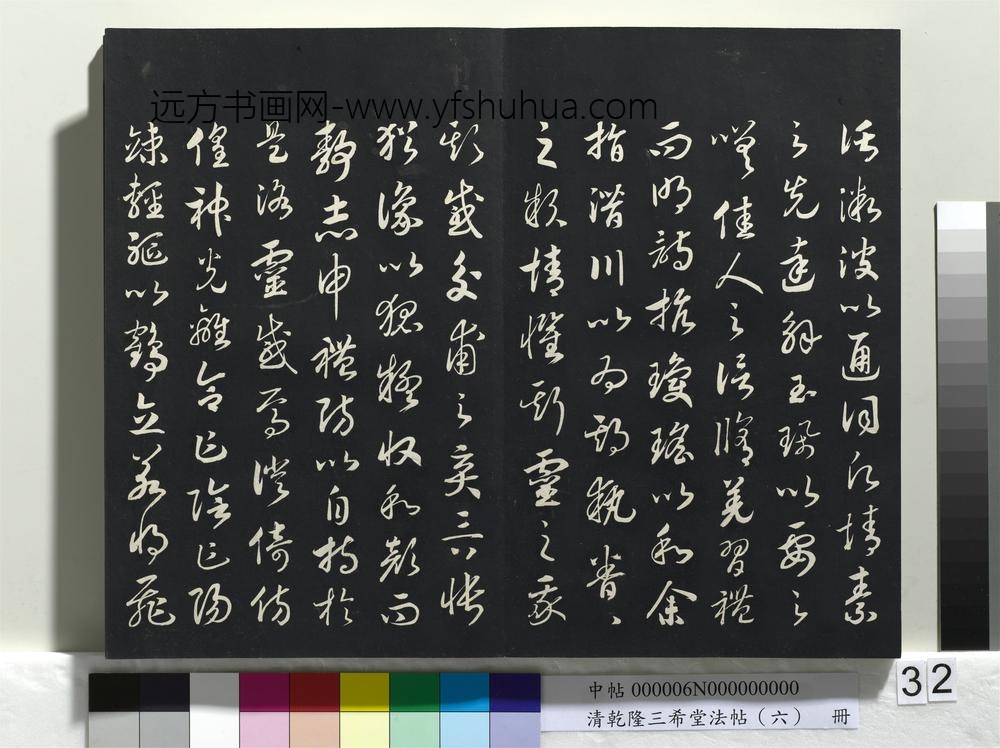 远方书画网-www.yfshuhua.com
託微波以通詞願情素
之先達解玉珮以要之
嗟佳人之信脩羌習禮
而明詩抗瓊瑤以和余
指潛川以為期執眷〻
之款情懼斯靈之我
欺感交甫之棄言悵
猶豫以狐疑收和顏而
靜志申禮防以自持於
是洛靈感焉徙倚彷
徨神光離合乍陰乍陽
竦輕軀以鶴立若將飛
32
中帖 000006N000000000
清乾隆三希堂法帖（六） 冊